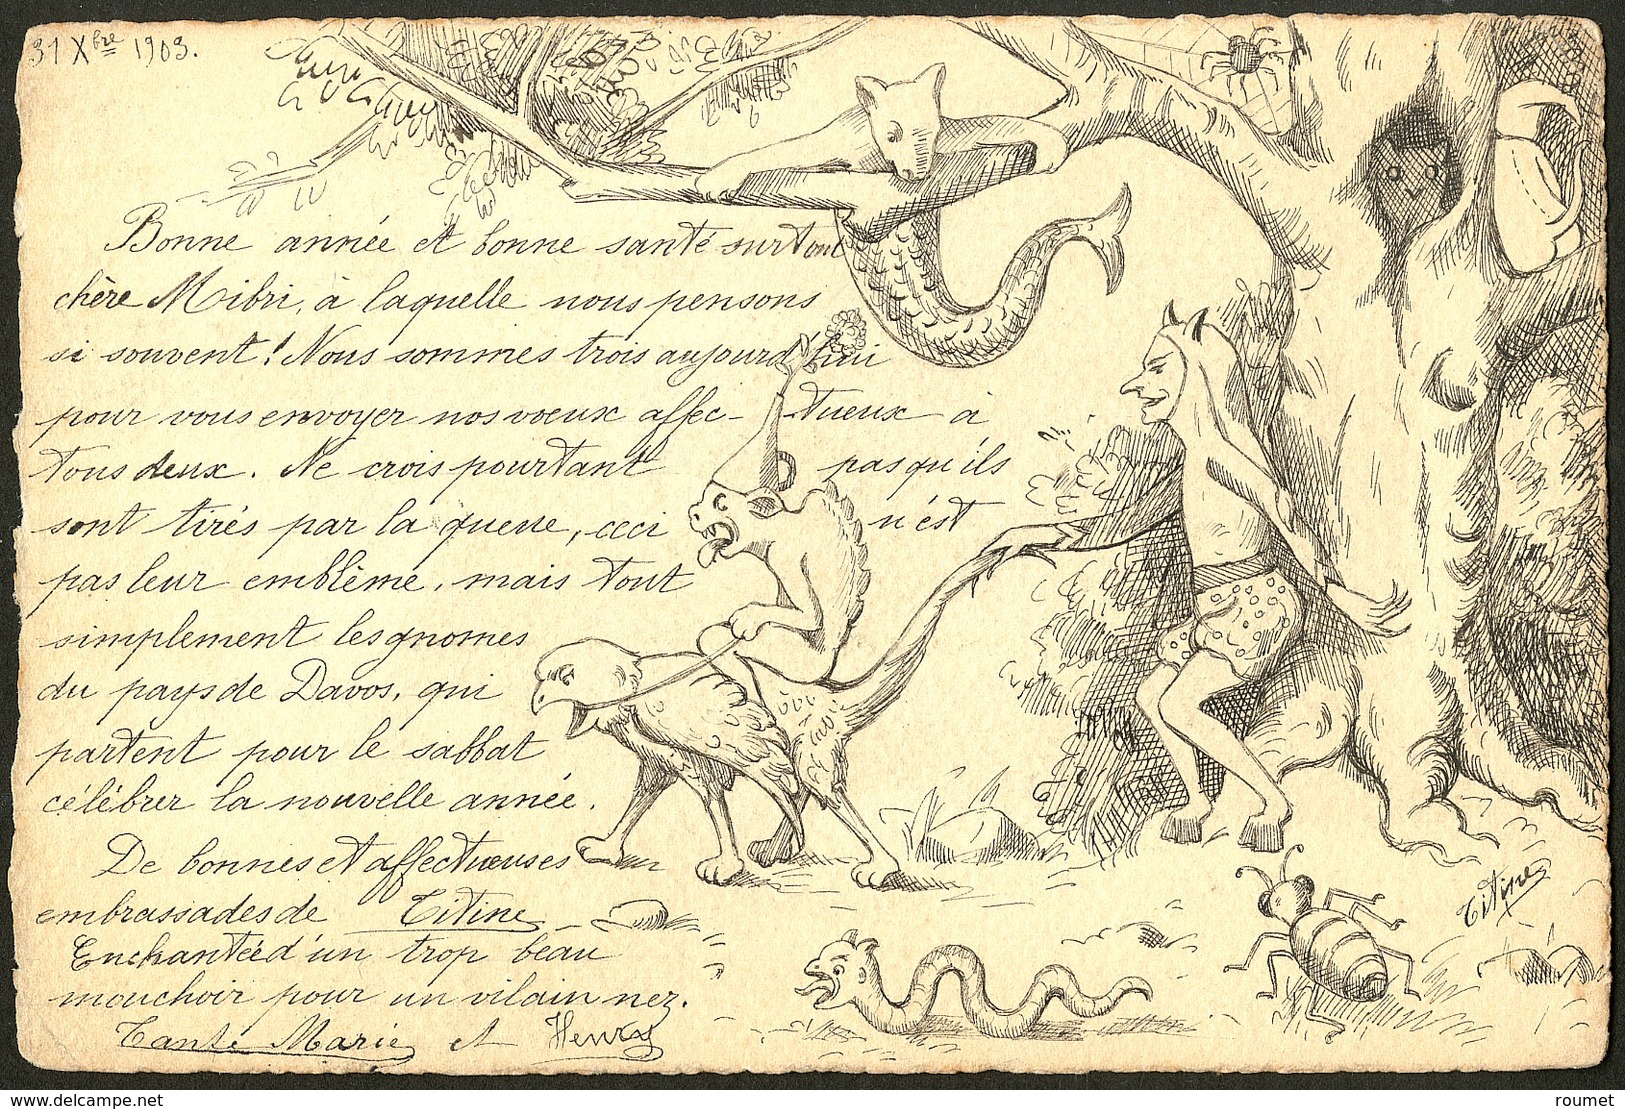 31 Xbre 1903.
Bonne année et bonne santé surtout
chère Mibri, à laquelle nous pensons
si souvent! Nous sommes trois aujourd'hui
pour vous envoyer nos voeux affec- tueux à
tous deux. Ne crois pourtant pas qu'ils
sont tirés par la queue, ceci n'est
pas leur emblème, mais tout
simplement les gnomes
du pays de Davos, qui
partent pour le sabbat
célébrer la nouvelle année.
De bonnes et affectueuses
embrassades de Titine
Enchantée d'un trop beau
mouchoir pour un vilain nez.
Tante Marie et Henry
Titine
www.delcampe.net
roumet